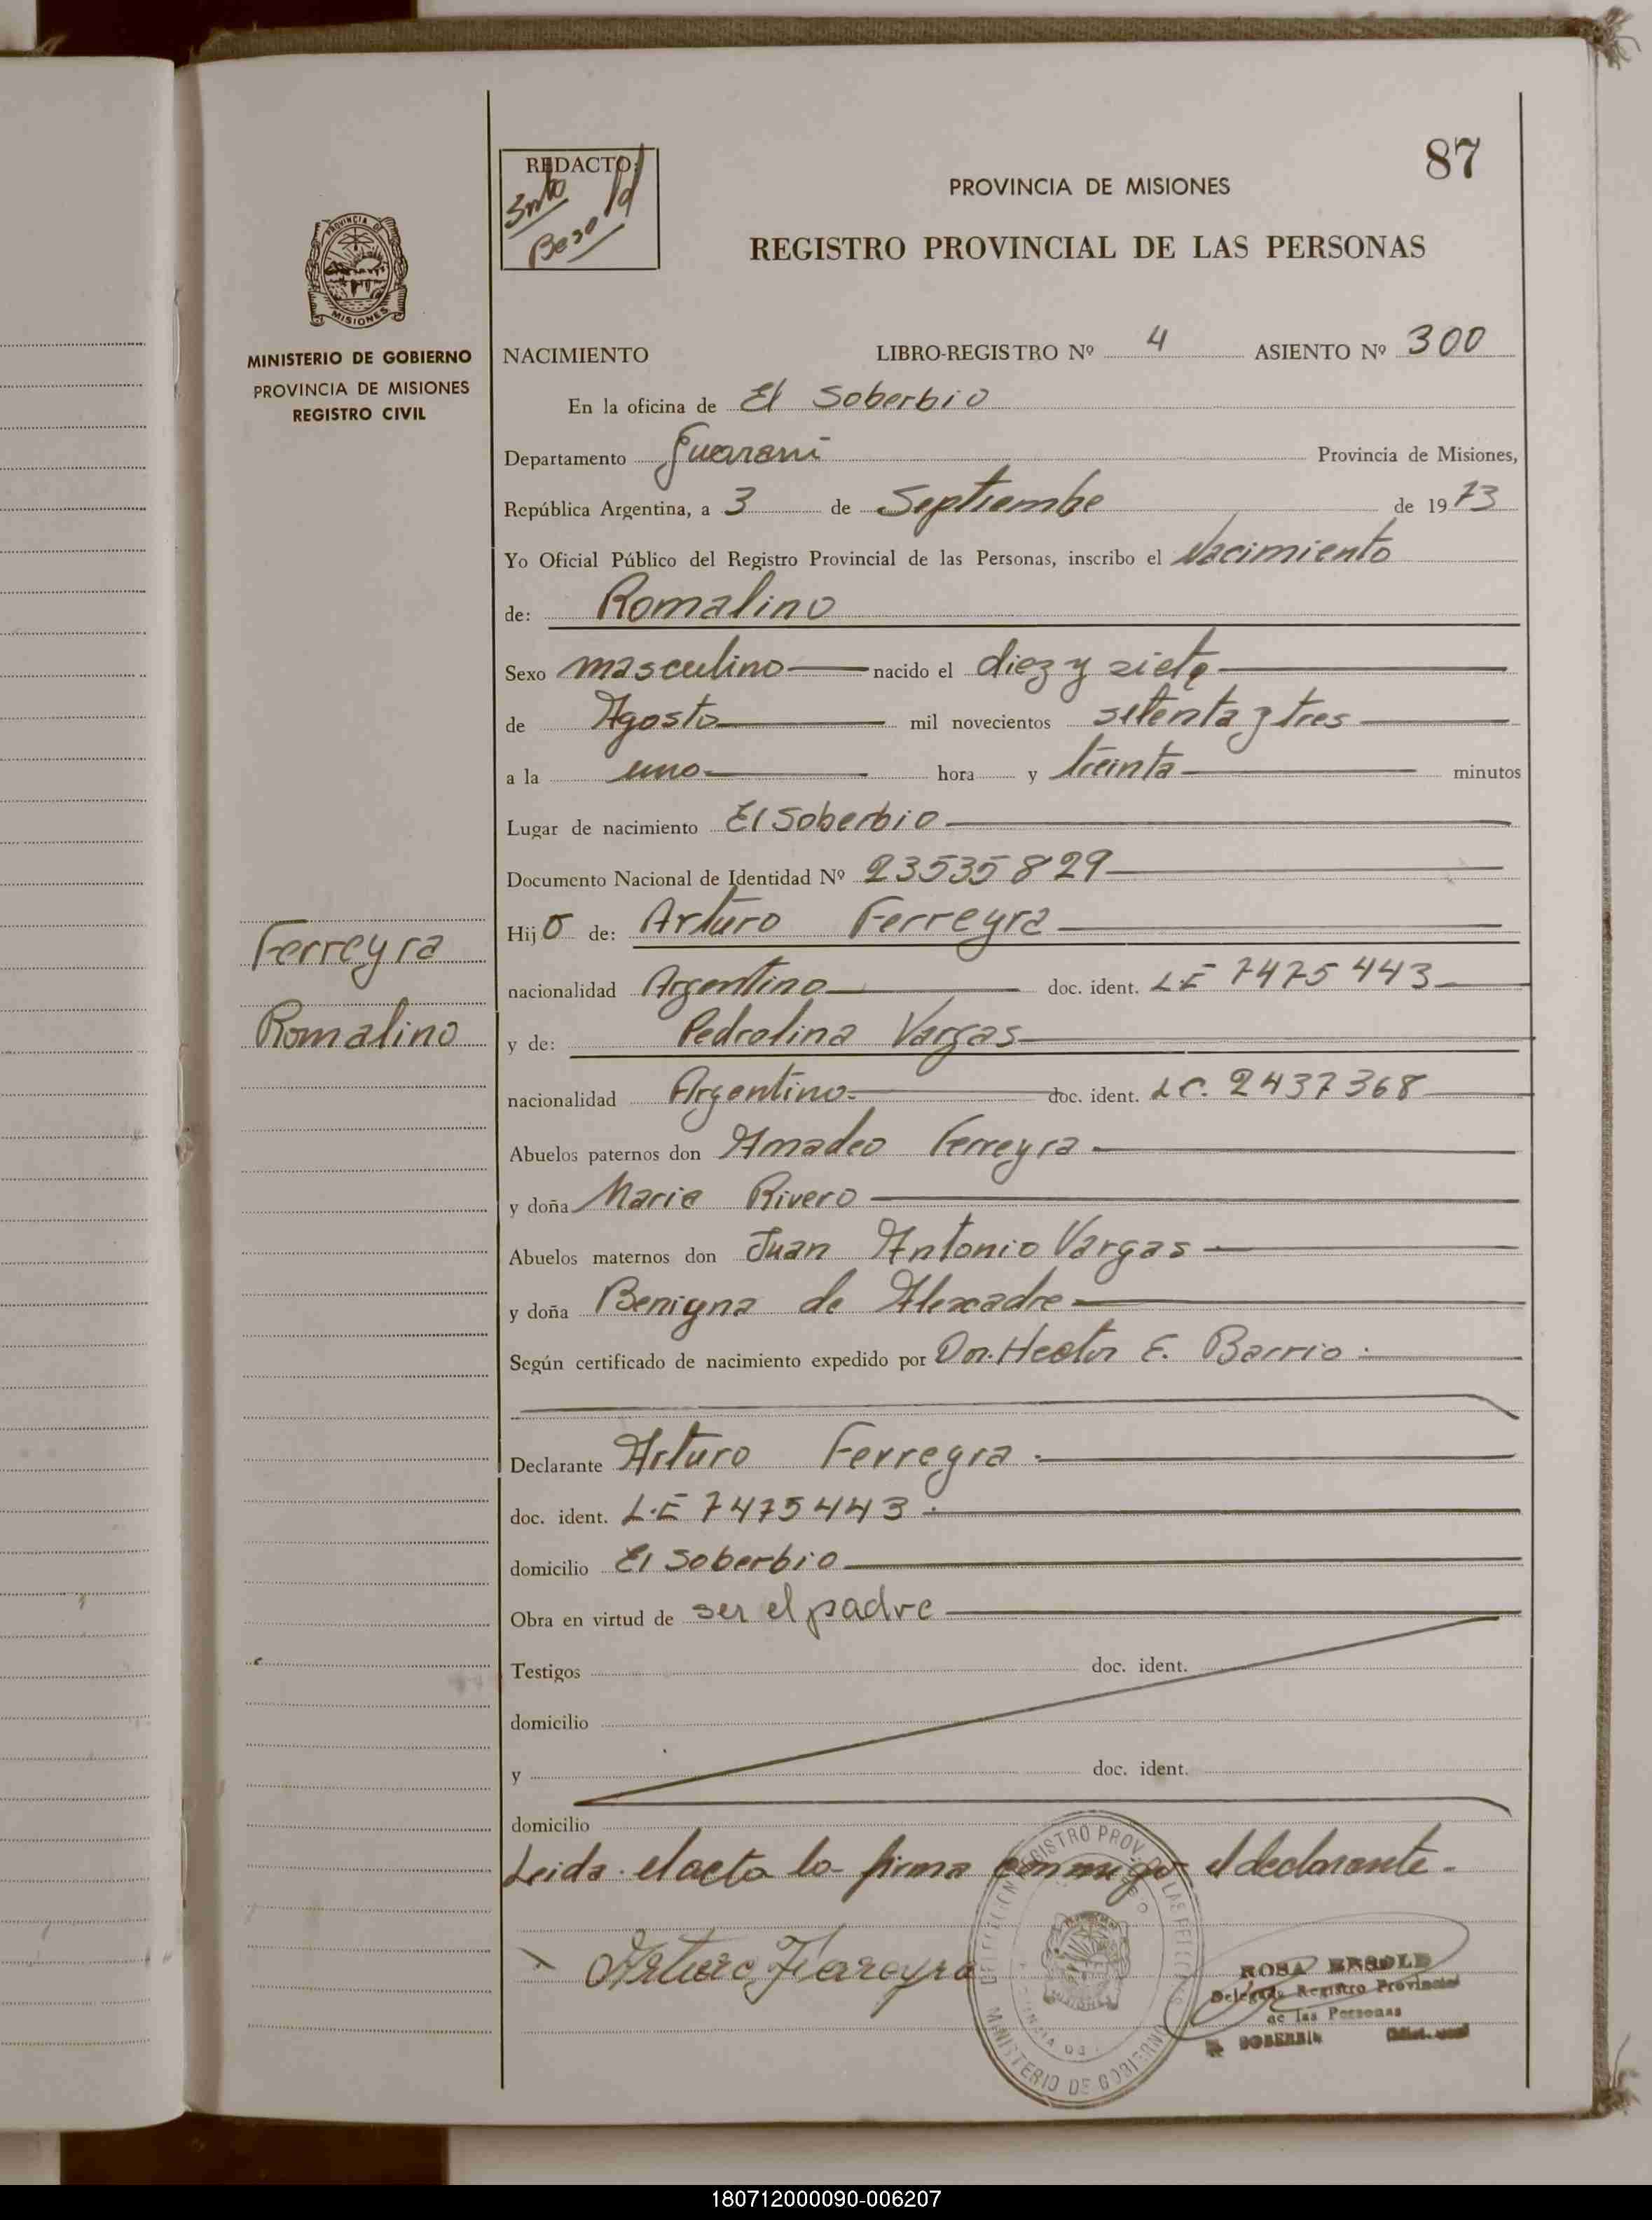 87
REDACTO:
PROVINCIA DE MISIONES
REGISTRO PROVINCIAL DE LAS PERSONAS
PROVINCIA DE
MISIONES
MINISTERIO DE GOBIERNO
PROVINCIA DE MISIONES
REGISTRO CIVIL
NACIMIENTO LIBRO-REGISTRO Nº 4 ASIENTO Nº 300
En la oficina de El Soberbio
Departamento Guarani Provincia de Misiones,
República Argentina, a 3 de Septiembe de 1973
Yo Oficial Público del Registro Provincial de las Personas, inscribo el Nacimiento
de: Romalino
Sexo masculino nacido el diez y siete
de Agosto mil novecientos setenta y tres
a la uno hora y treinta minutos
Lugar de nacimiento El Soberbio
Documento Nacional de Identidad Nº 23535829
Hijo de: Arturo Ferreyra
Ferreyra
nacionalidad Argentino doc. ident. LE 7475443
Romalino
y de: Pedrolina Vargas
nacionalidad Argentino doc. ident. LC. 2437368
Abuelos paternos don Amadeo Ferreyra
y doña Maria Rivero
Abuelos maternos don Juan Antonio Vargas
y doña Benigna de Alexadre
Según certificado de nacimiento expedido por Dr. Hector E. Barrio.
Declarante Arturo Ferreyra.
doc. ident. L.E 7475443.
domicilio El Soberbio
Obra en virtud de ser el padre
Testigos doc. ident.
domicilio
y doc. ident.
domicilio
Leida el acta la firma conmigo el declarante.
Arturo Ferreyra
REGISTRO PROV. DE LAS PERSONAS
MINISTERIO DE GOBIERNO
ROSA BESOLD
Delegada Registro Provincial
de las Personas
EL SOBERBIO
180712000090-006207